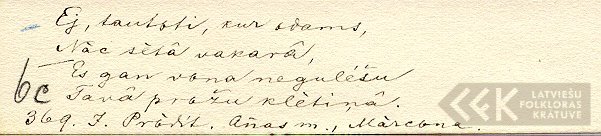 Ej, tautoti, kur ədams,
Nāc sētâ vakarâ,
Es gan vəna negulēšu
6c Tavâ prəžu klētiņâ.
369. I. Prōdit. Añas m., Mārcəna.
LATVIEŠU
FOLKLORAS
KRĀTUVE